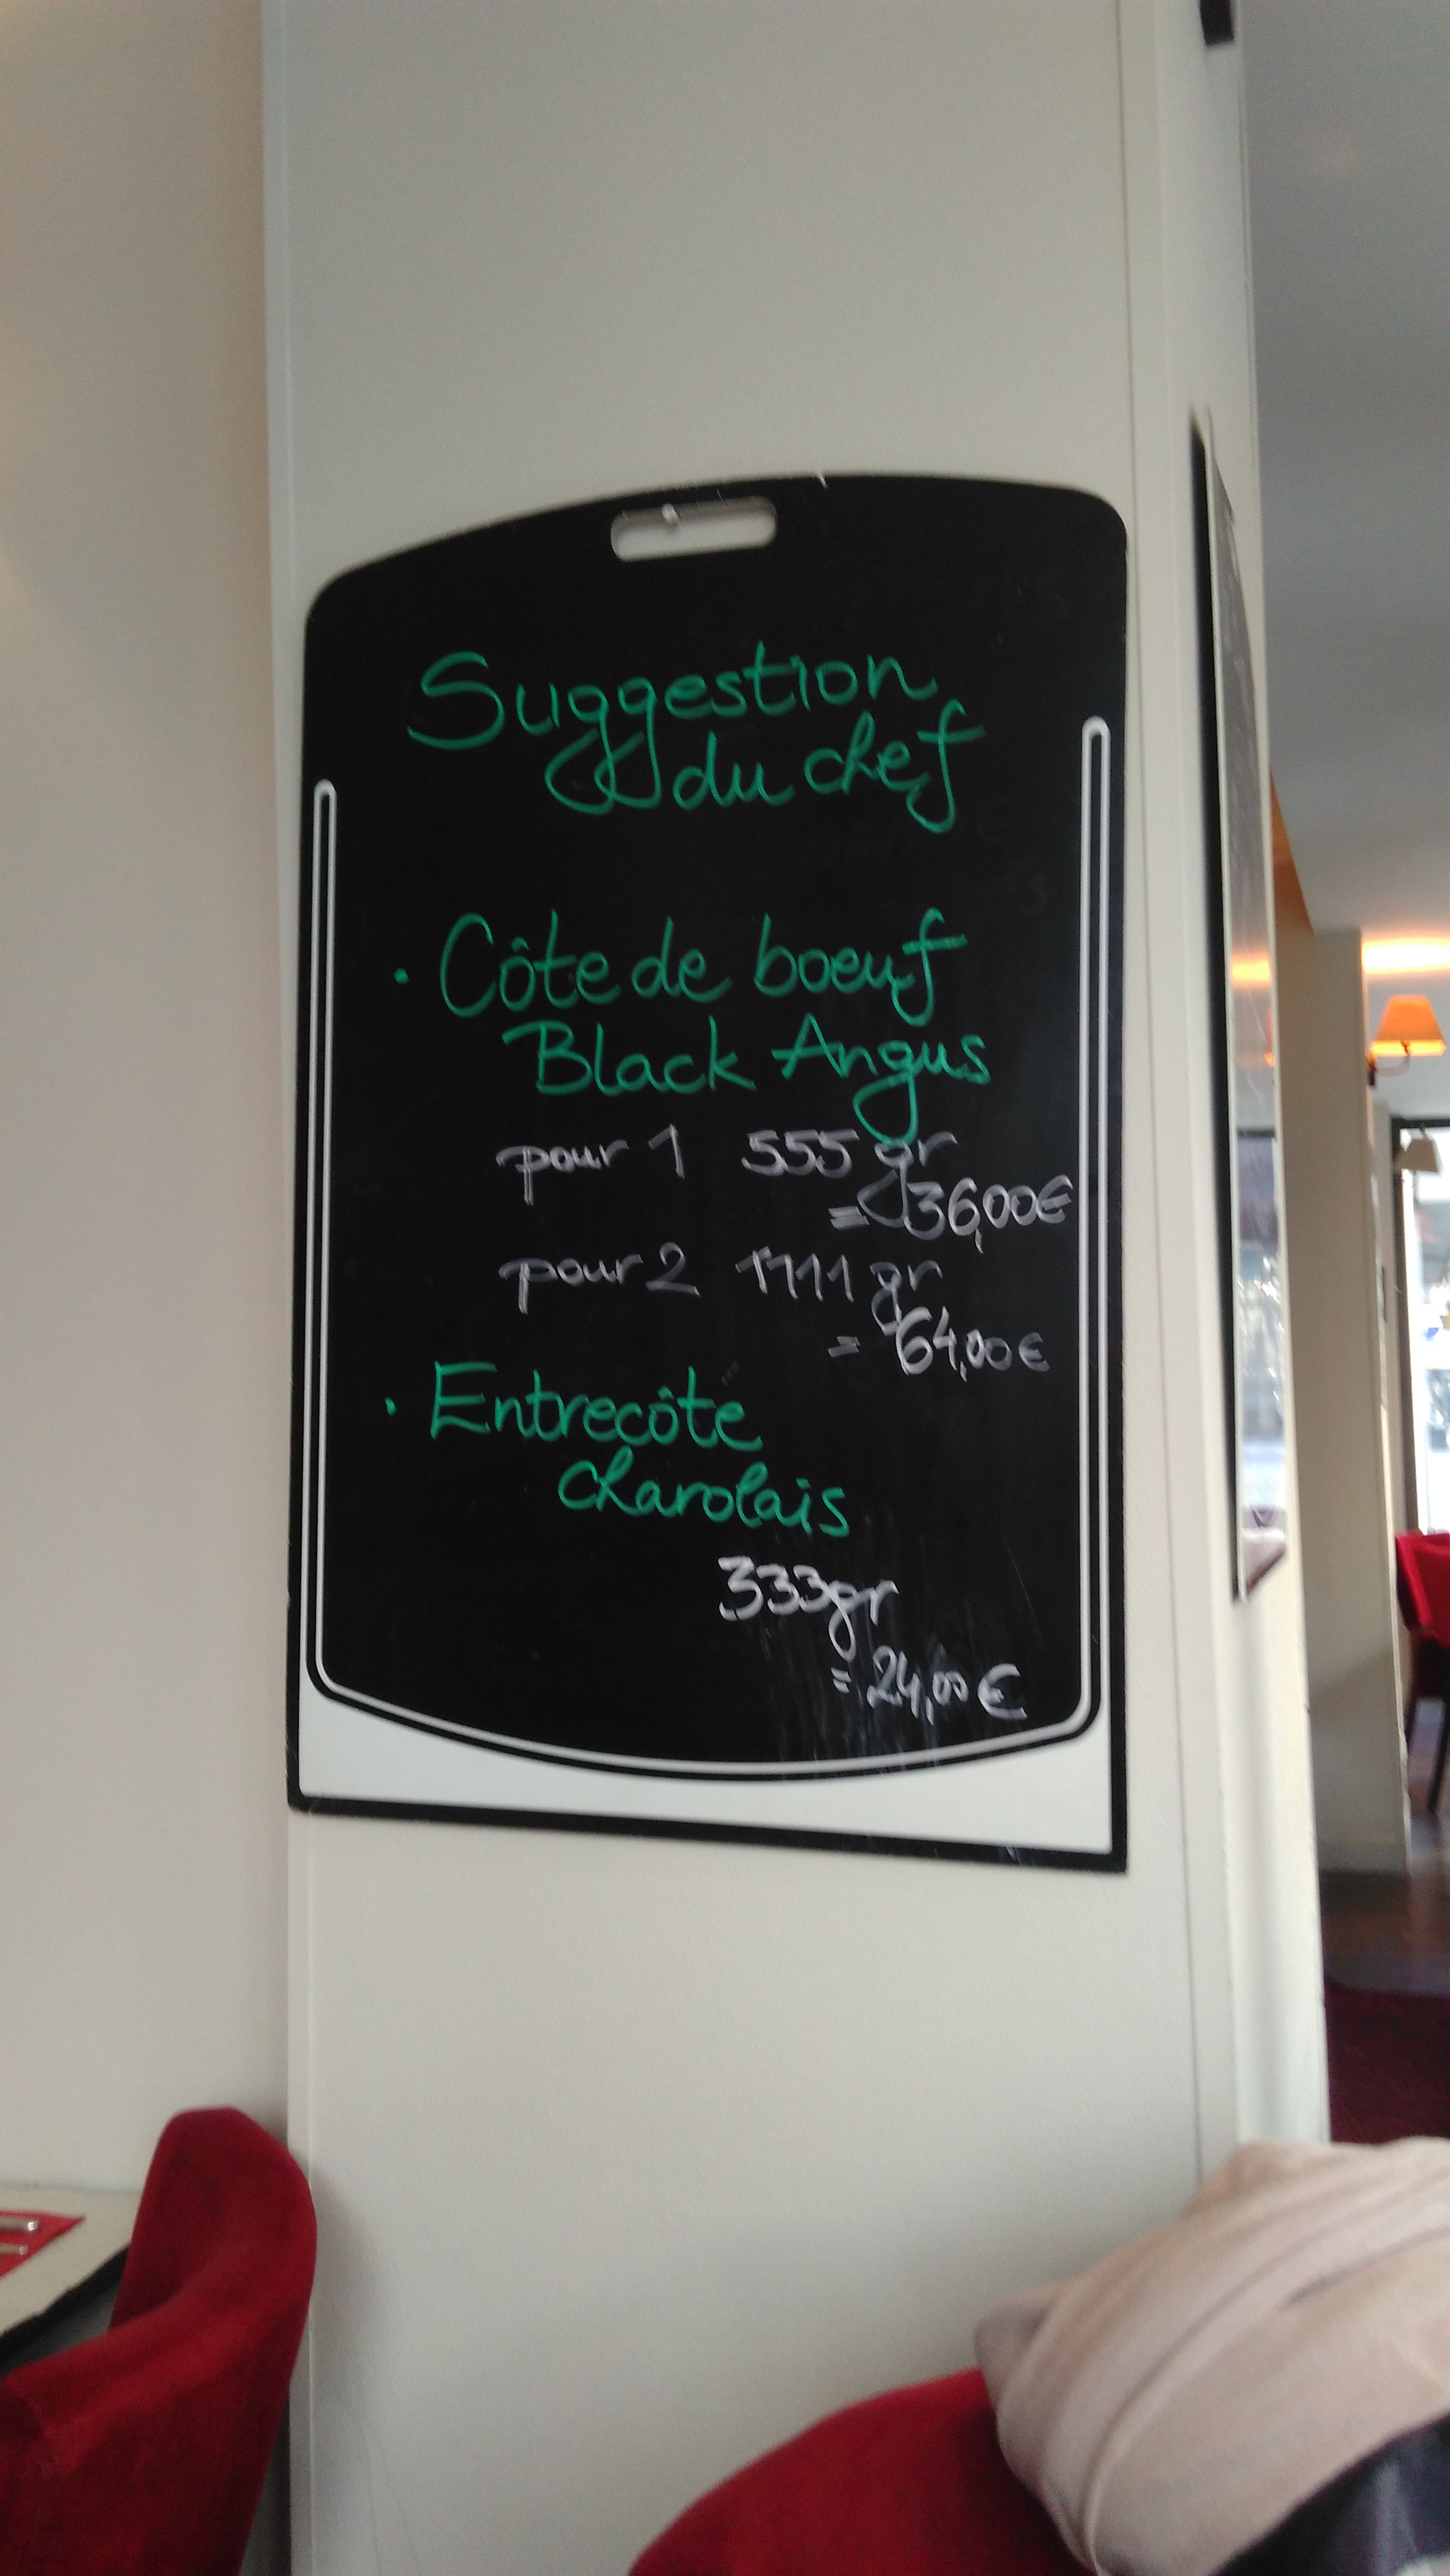 Suggestion
du chef
· Côte de boeuf
Black Angus
pour 1 555 gr
= 36,00€
pour 2 1111 gr
= 64,00€
· Entrecôte
charolais
333gr
= 24,00€